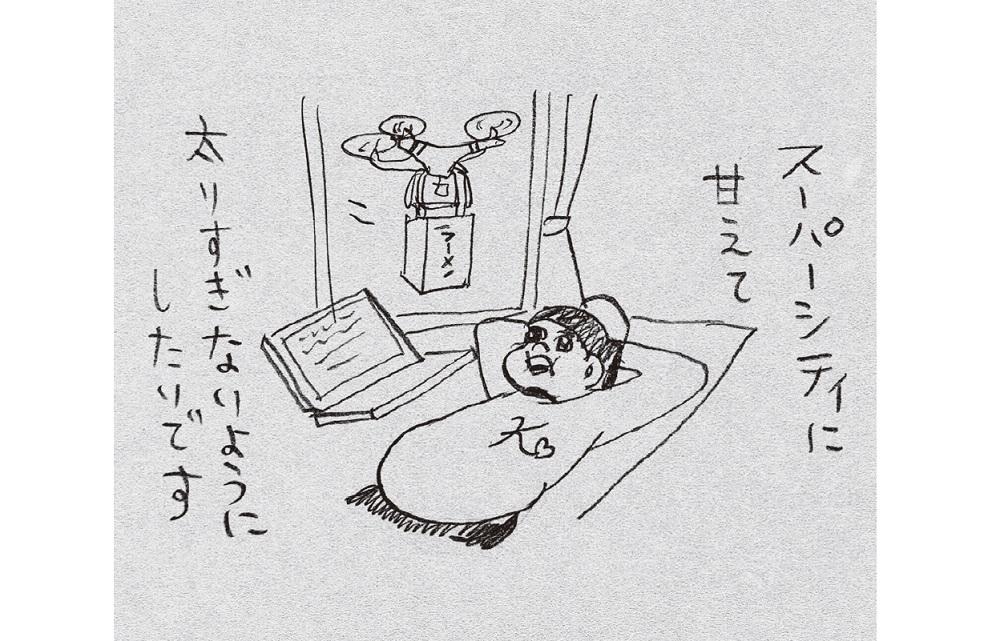 スーパーシティに
甘えて
ラーメン
太りすぎないように
したいです